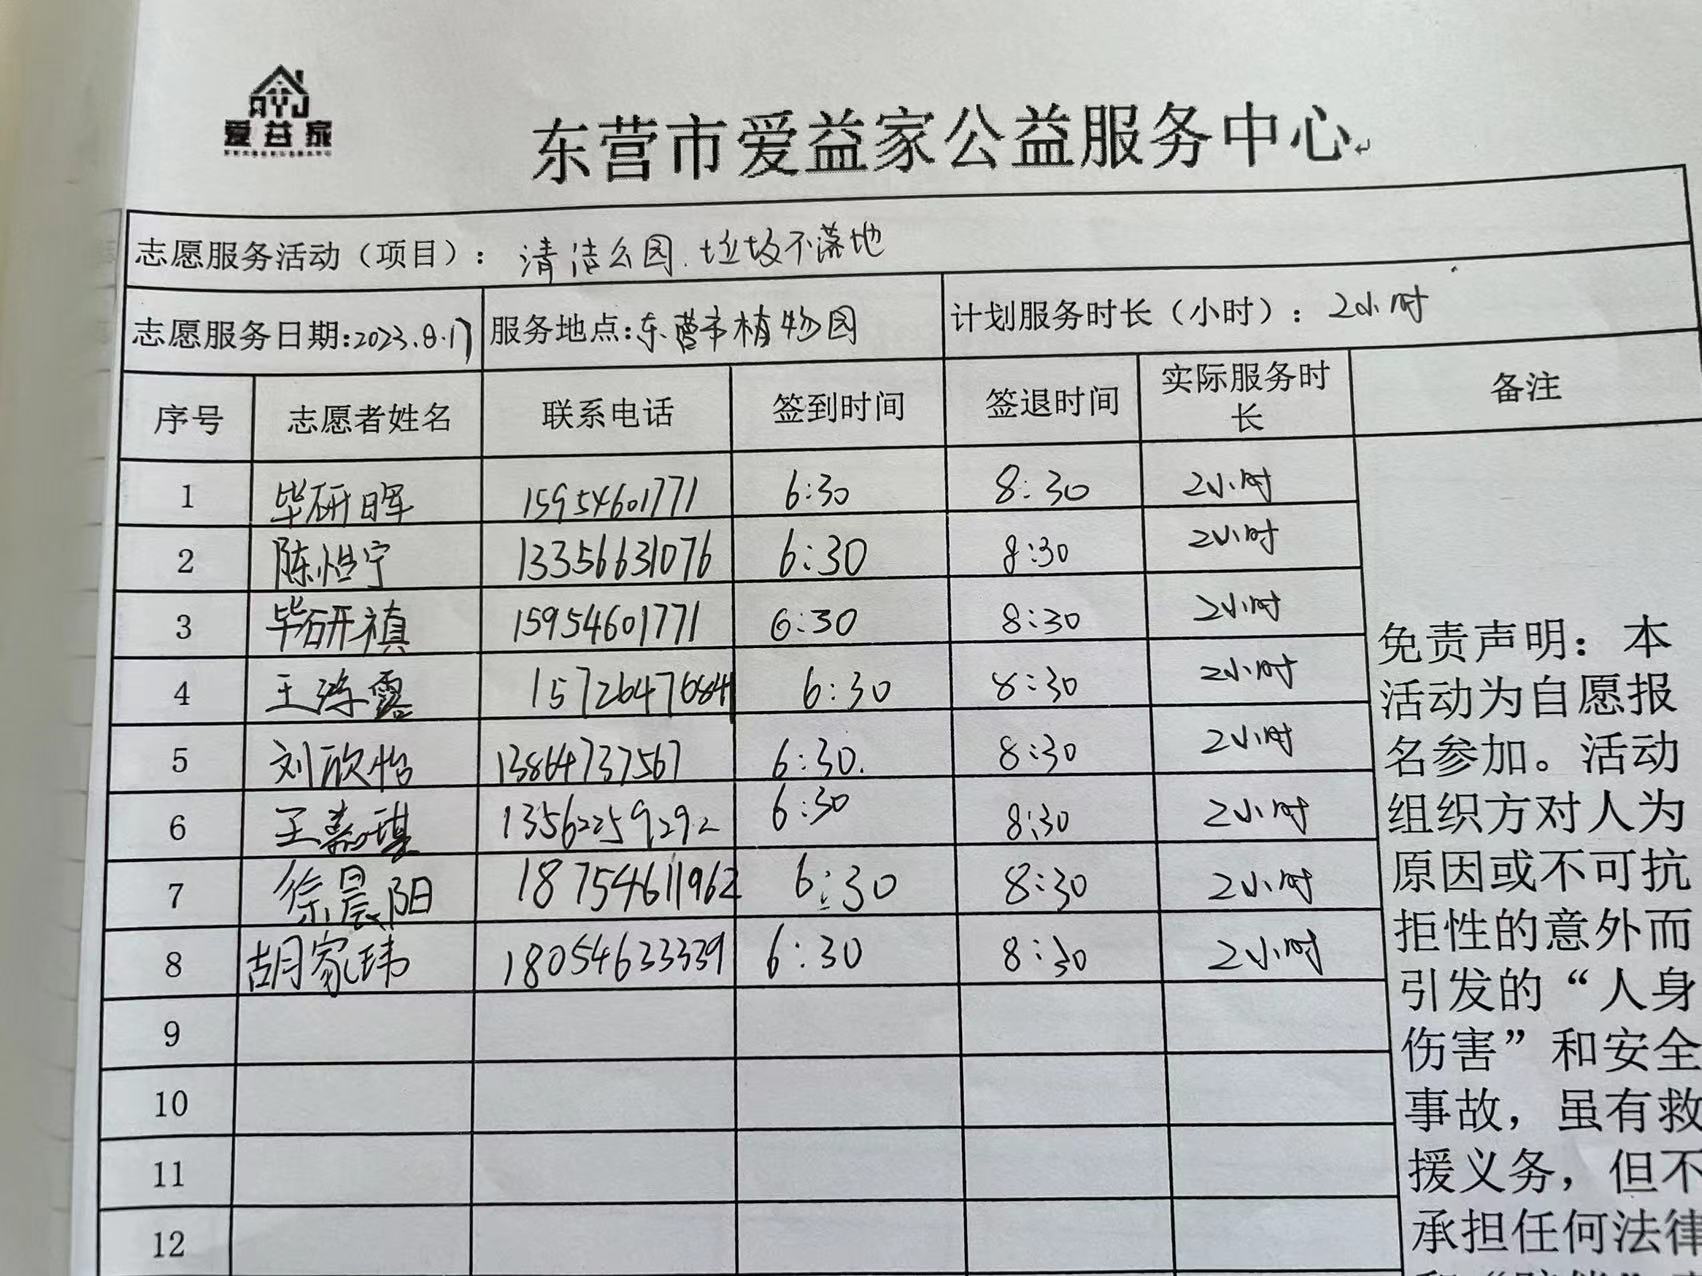 AYJ
爱益家
东营市爱益家公益服务中心
志愿服务活动（项目）：清洁公园.垃圾不落地
志愿服务日期:2023.8.17 服务地点:东营市植物园 计划服务时长（小时）：2小时
序号 志愿者姓名 联系电话 签到时间 签退时间 实际服务时长 备注
1 毕研晖 15954601771 6:30 8:30 2小时
2 陈恺宁 13356631076 6:30 8:30 2小时
3 毕研禛 15954601771 6:30 8:30 2小时
4 王 露 6:30 8:30 2小时
5 刘欣怡 13864737567 6:30. 8:30 2小时
6 王 琪 13562259292 6:30 8:30 2小时
7 徐晨阳 18754611962 6:30 8:30 2小时
8 胡家玮 18054633339 6:30 8:30 2小时
9
10
11
12
免责声明：本
活动为自愿报
名参加。活动
组织方对人为
原因或不可抗
拒性的意外而
引发的“人身
伤害”和安全
事故，虽有救
援义务，但不
承担任何法律